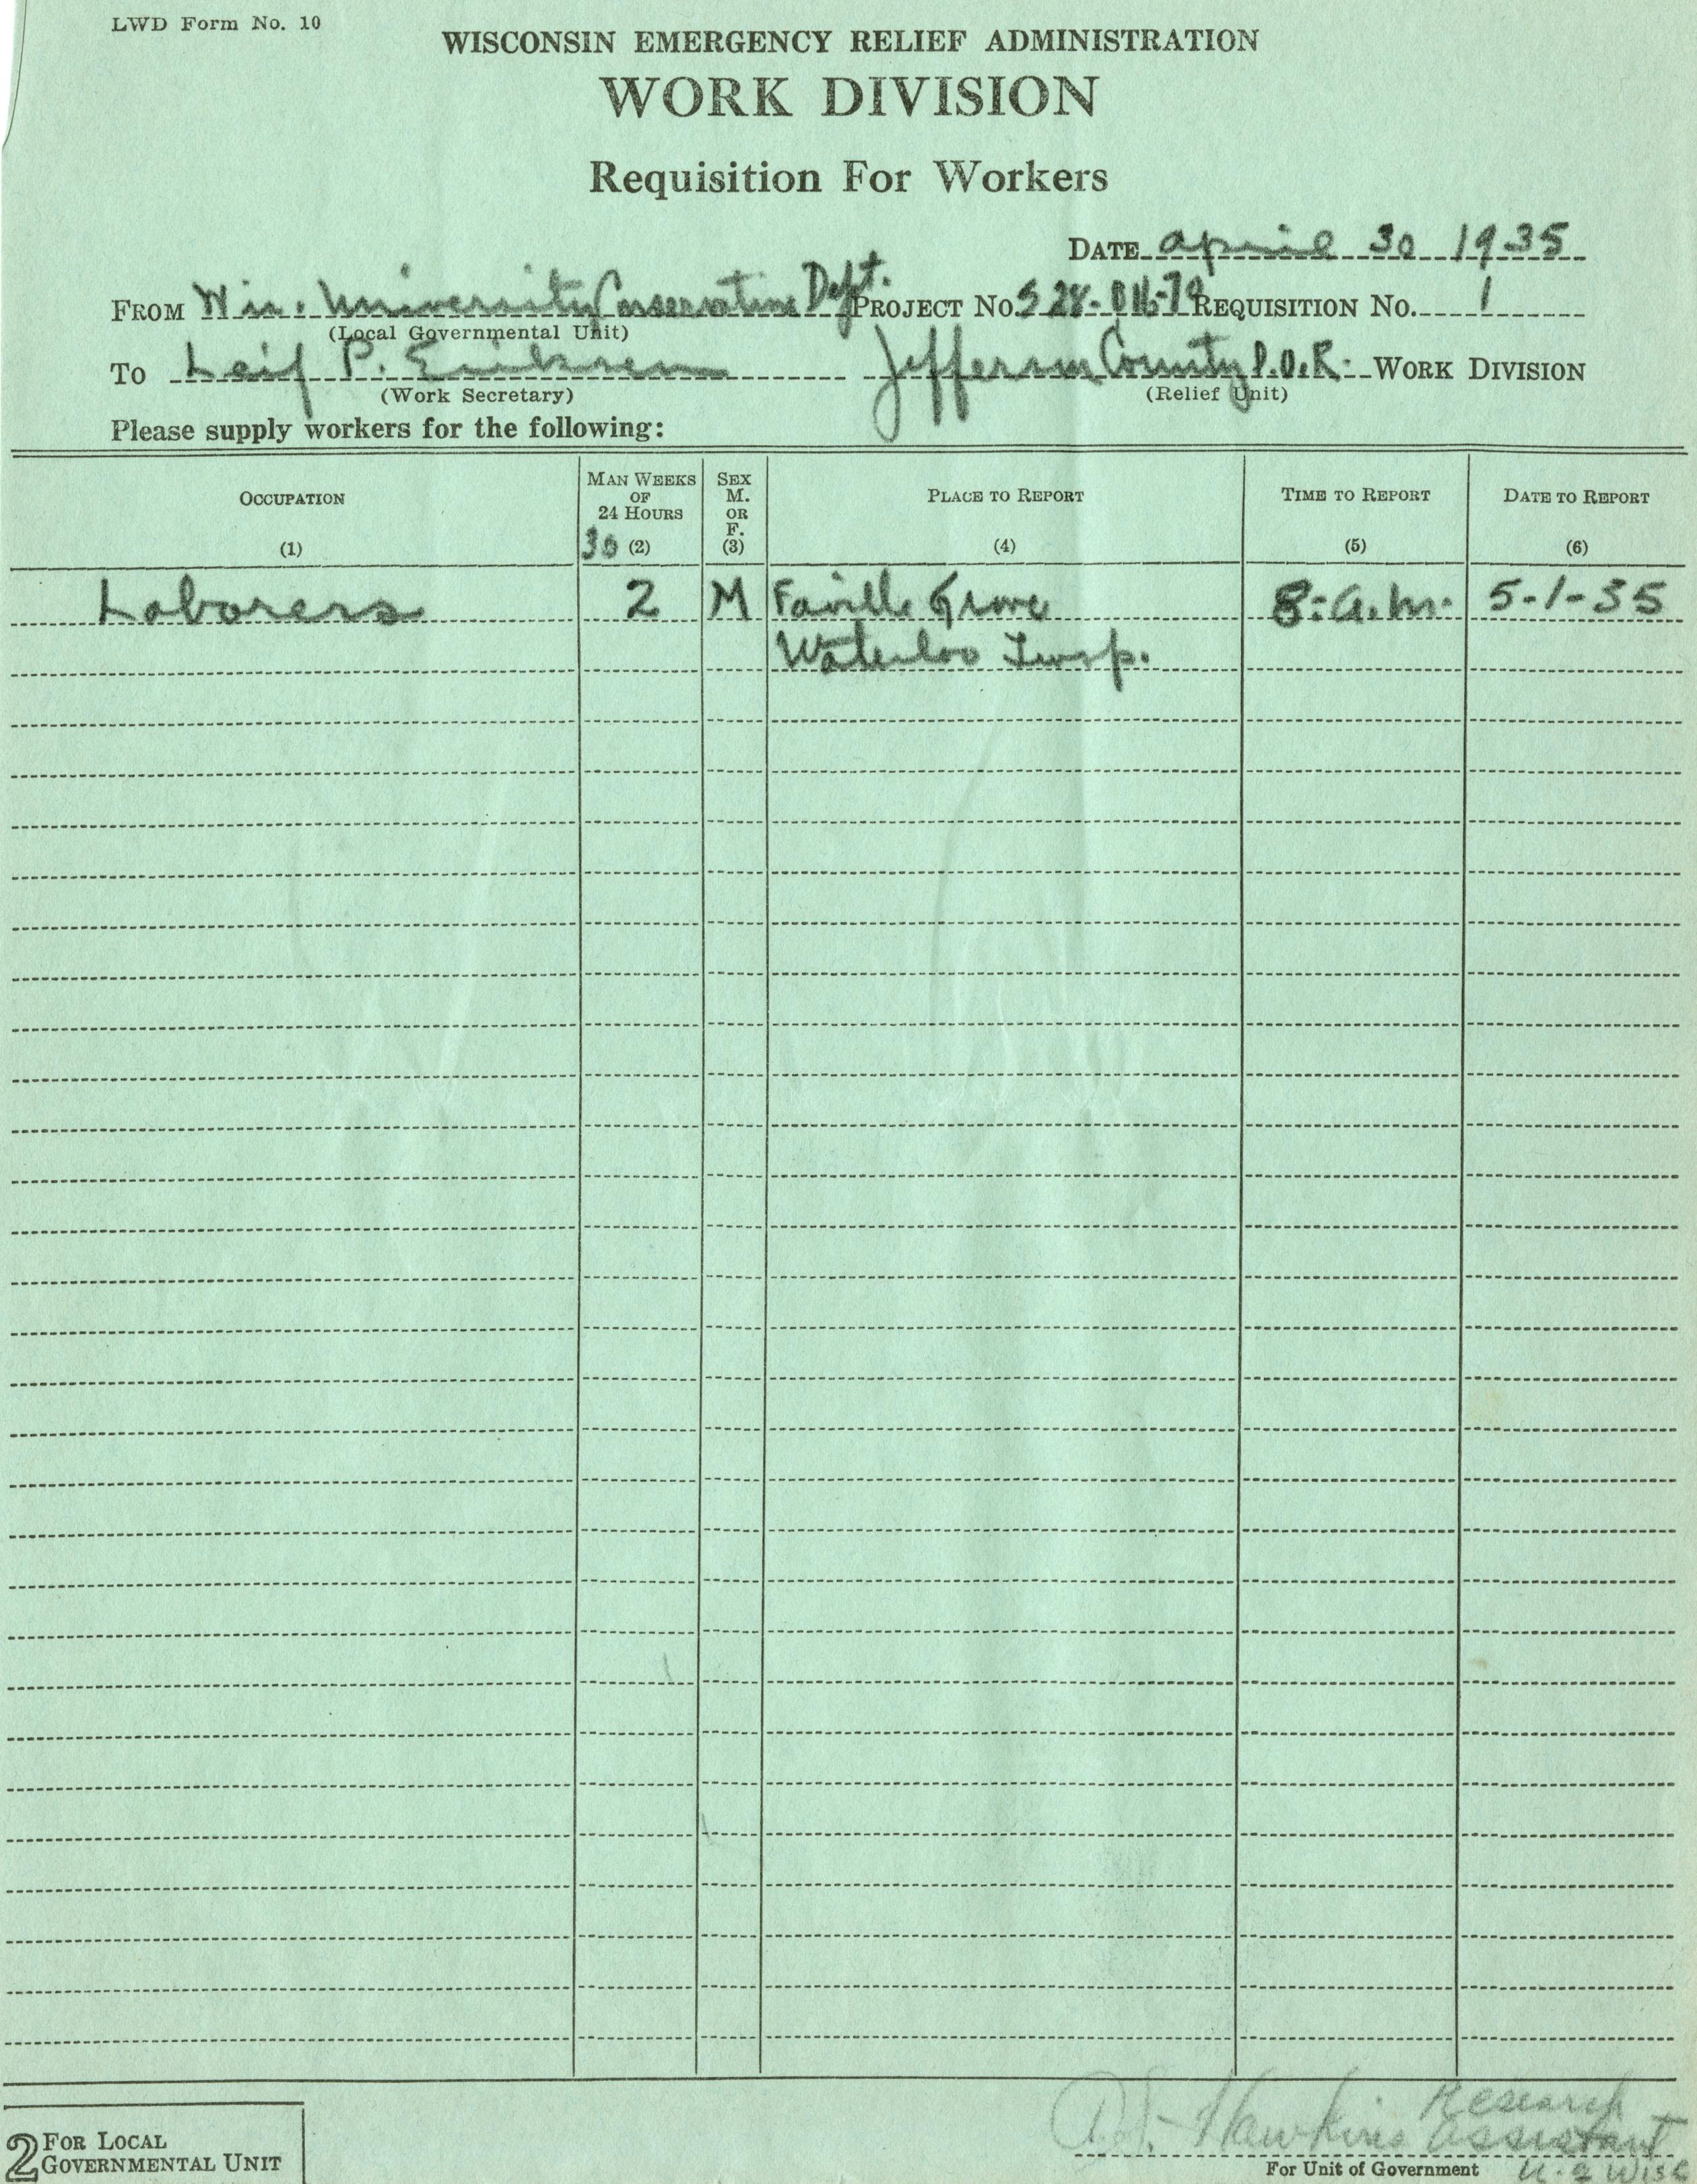 LWD Form No. 10
WISCONSIN EMERGENCY RELIEF ADMINISTRATION
WORK DIVISION
Requisition For Workers
DATE April 30 1935
FROM Wis. University Conservation Dept. PROJECT No. REQUISITION No. 1
(Local Governmental Unit)
To Leif P. Eriksen Jefferson County P.O.R. WORK DIVISION
(Work Secretary) (Relief Unit)
Please supply workers for the following:
OCCUPATION (1)
MAN WEEKS OF 24 HOURS 30 (2)
SEX M. OR F. (3)
PLACE TO REPORT (4)
TIME TO REPORT (5)
DATE TO REPORT (6)
Laborers 2 M Faville Grove 8:a.m. 5-1-35
Waterloo Twsp.
Hawkins Research
Assistant
2 FOR LOCAL GOVERNMENTAL UNIT
For Unit of Government U. of Wisc